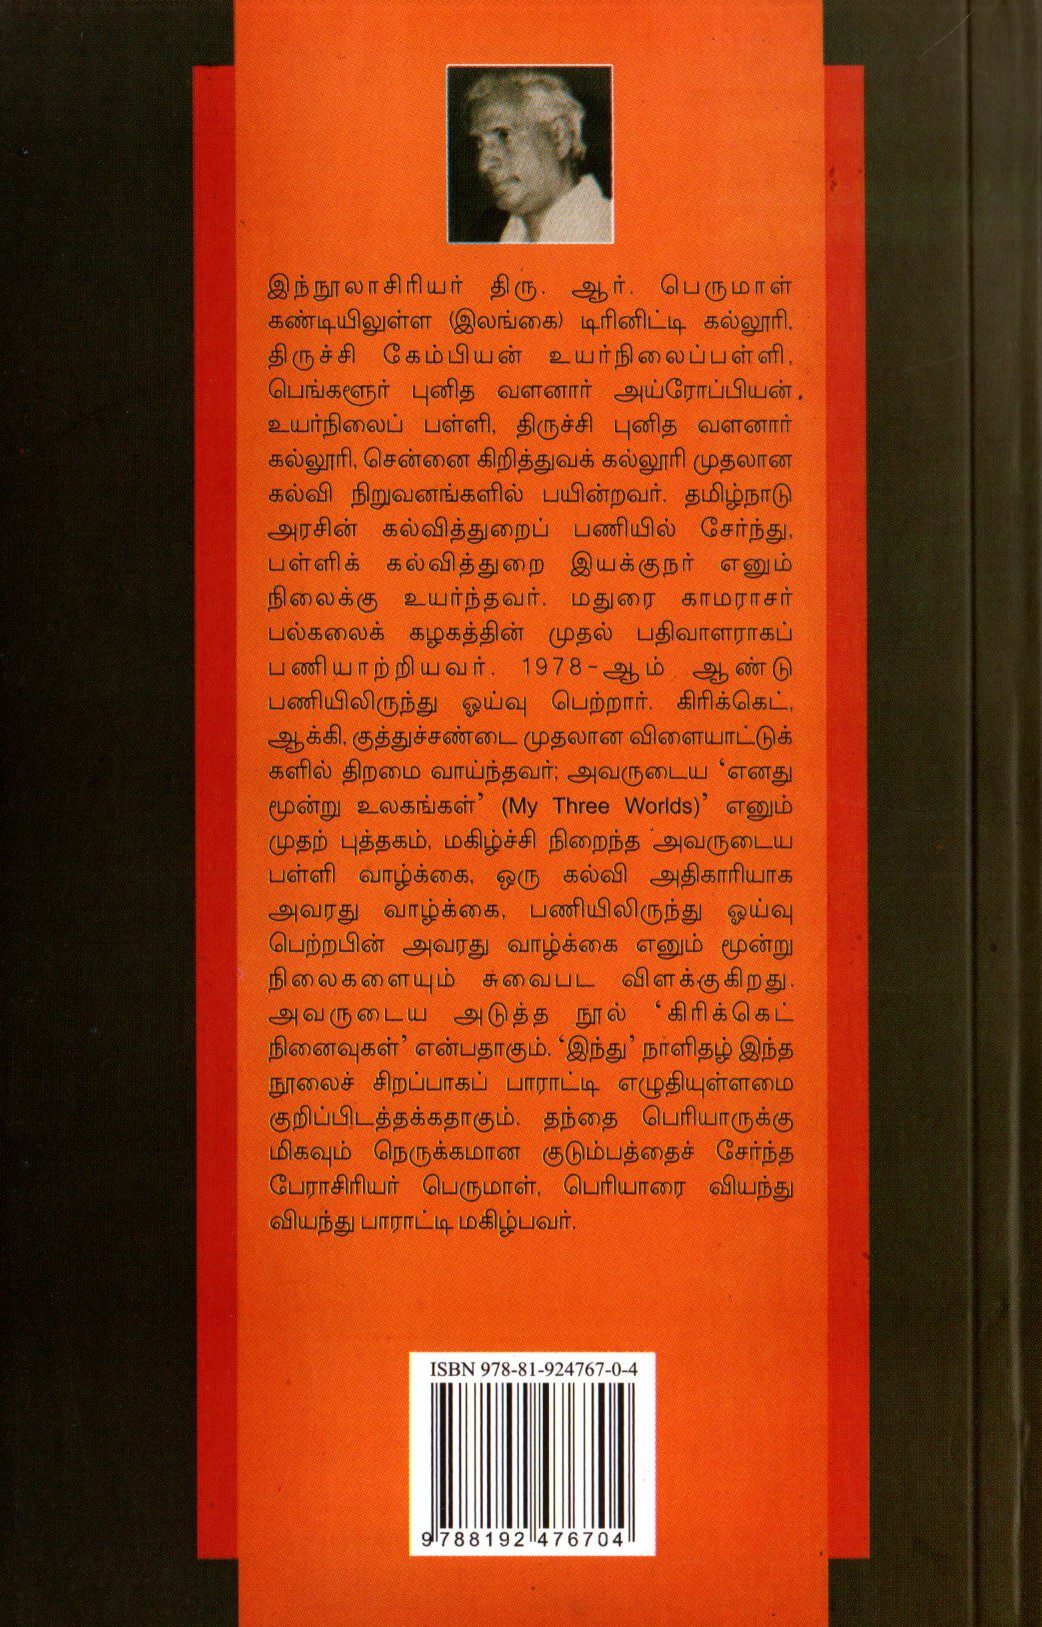 இந்நூலாசிரியர் திரு. ஆர். பெருமாள்
கண்டியிலுள்ள (இலங்கை) டிரினிட்டி கல்லூரி,
திருச்சி கேம்பியன் உயர்நிலைப்பள்ளி,
பெங்களூர் புனித வளனார் அய்ரோப்பியன்
உயர்நிலைப் பள்ளி, திருச்சி புனித வளனார்
கல்லூரி, சென்னை கிறித்துவக் கல்லூரி முதலான
கல்வி நிறுவனங்களில் பயின்றவர். தமிழ்நாடு
அரசின் கல்வித்துறைப் பணியில் சேர்ந்து,
பள்ளிக் கல்வித்துறை இயக்குநர் எனும்
நிலைக்கு உயர்ந்தவர். மதுரை காமராசர்
பல்கலைக் கழகத்தின் முதல் பதிவாளராகப்
பணியாற்றியவர். 1978-ஆம் ஆண்டு
பணியிலிருந்து ஓய்வு பெற்றார். கிரிக்கெட்,
ஆக்கி, குத்துச்சண்டை முதலான விளையாட்டுக்
களில் திறமை வாய்ந்தவர்; அவருடைய ‘எனது
மூன்று உலகங்கள்’ (My Three Worlds)’ எனும்
முதற் புத்தகம், மகிழ்ச்சி நிறைந்த அவருடைய
பள்ளி வாழ்க்கை, ஒரு கல்வி அதிகாரியாக
அவரது வாழ்க்கை, பணியிலிருந்து ஓய்வு
பெற்றபின் அவரது வாழ்க்கை எனும் மூன்று
நிலைகளையும் சுவைபட விளக்குகிறது.
அவருடைய அடுத்த நூல் ‘கிரிக்கெட்
நினைவுகள்’ என்பதாகும். ‘இந்து’ நாளிதழ் இந்த
நூலைச் சிறப்பாகப் பாராட்டி எழுதியுள்ளமை
குறிப்பிடத்தக்கதாகும். தந்தை பெரியாருக்கு
மிகவும் நெருக்கமான குடும்பத்தைச் சேர்ந்த
பேராசிரியர் பெருமாள், பெரியாரை வியந்து
வியந்து பாராட்டி மகிழ்பவர்.
ISBN 978-81-924767-0-4
9 788192 476704